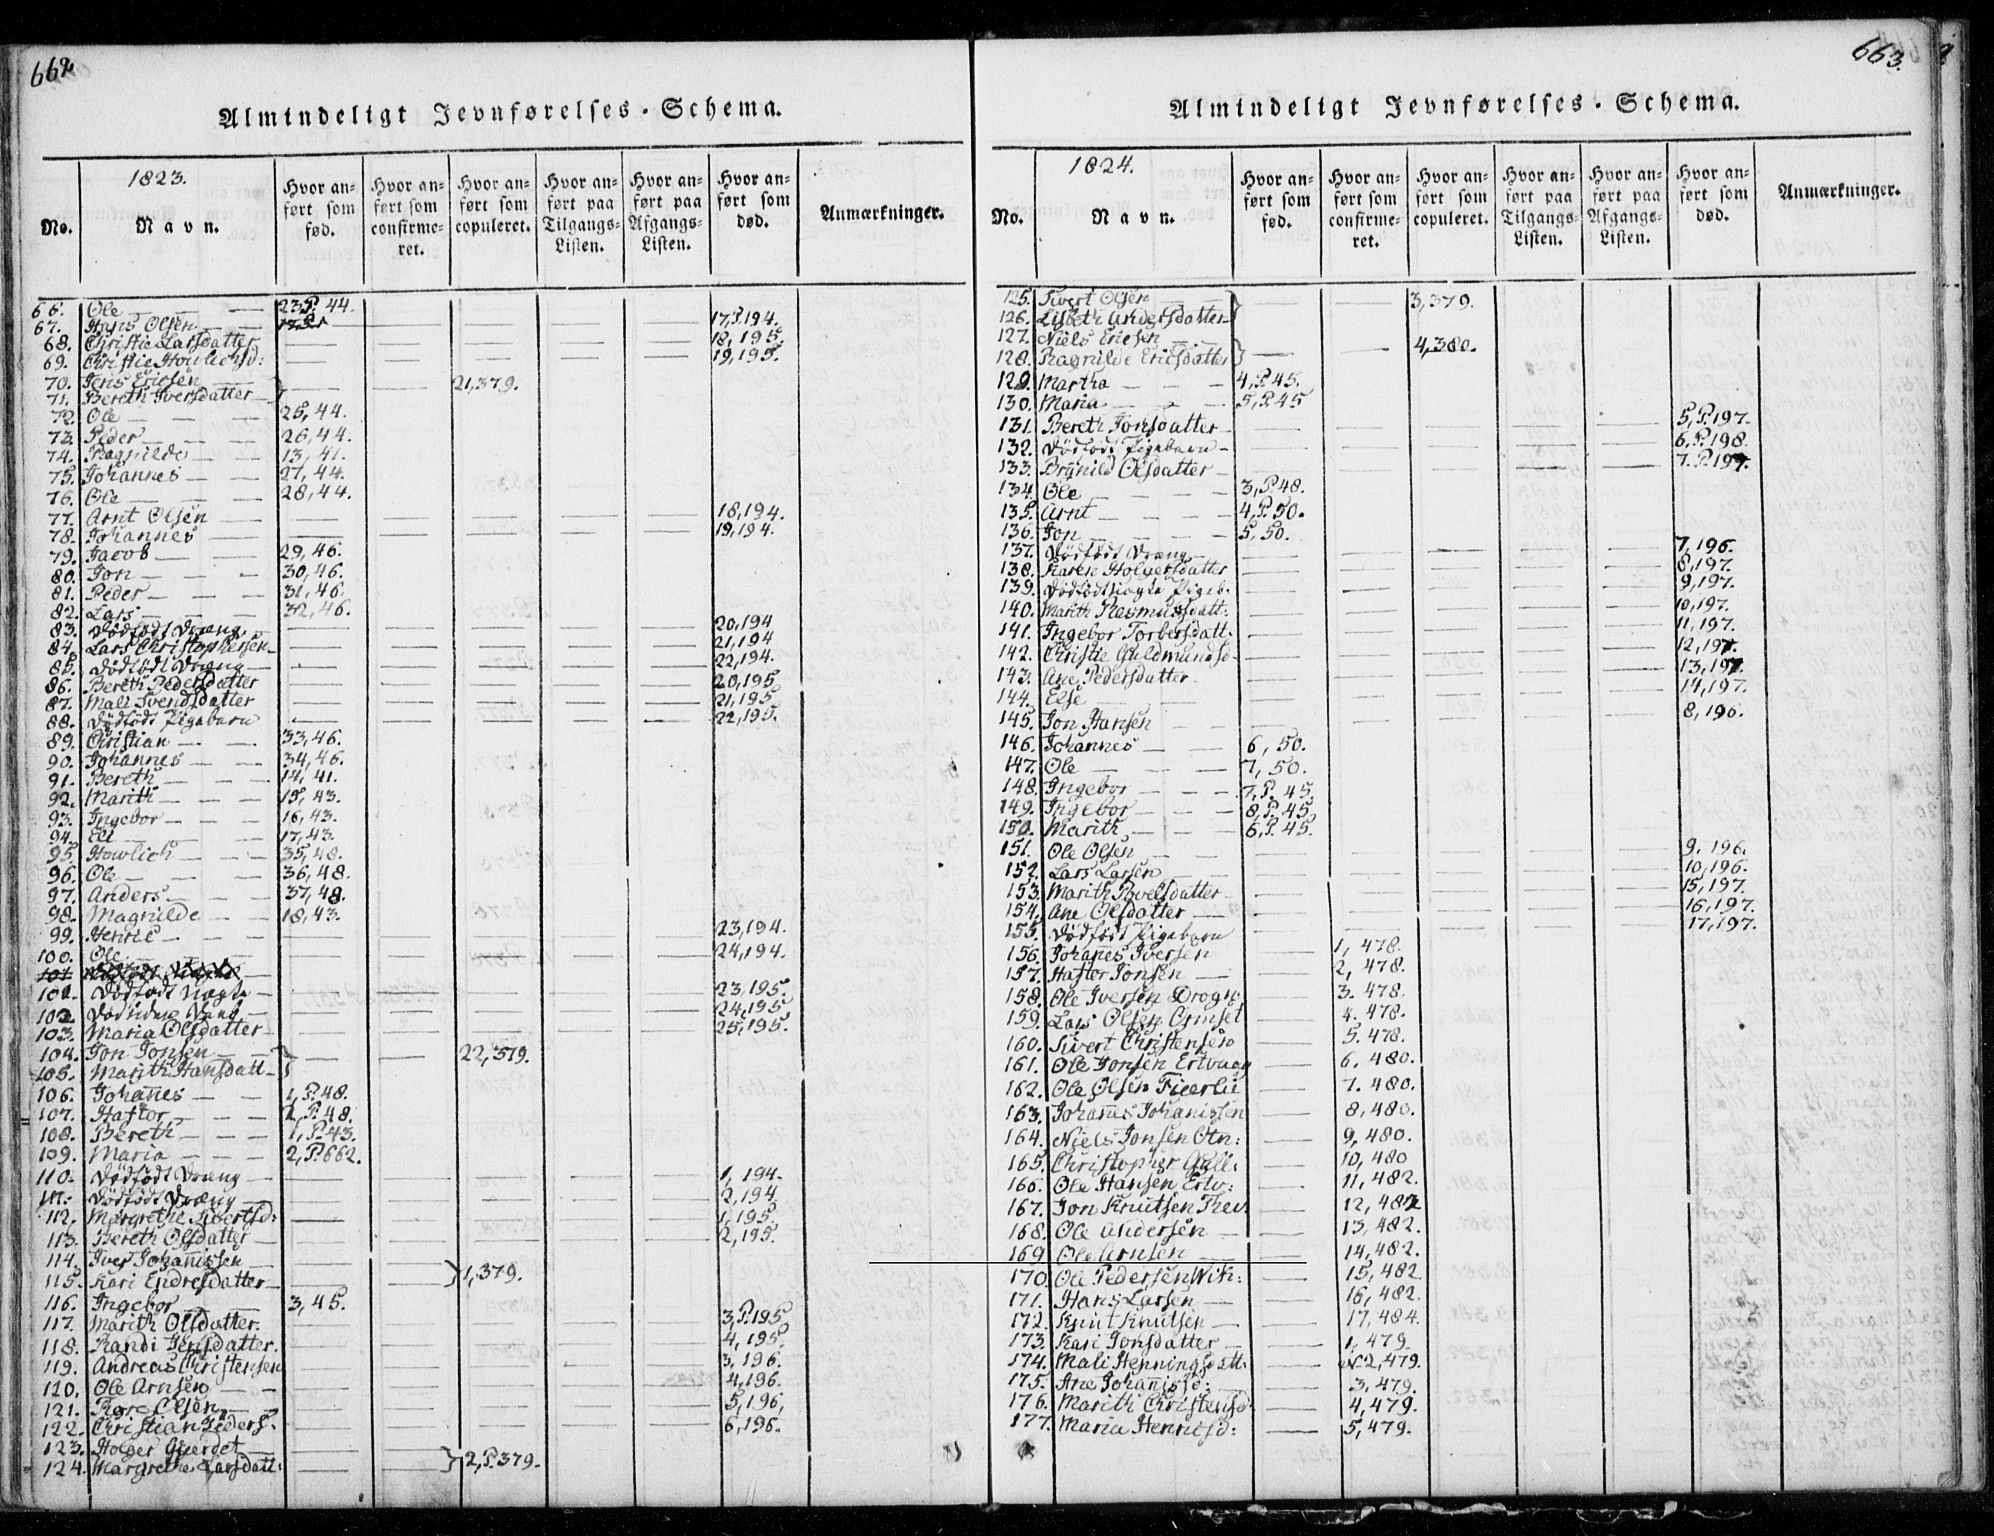 662
Almindeligt Jevnførelses-Schema.
1823.
No.
Navn.
Hvor anført som fød.
Hvor anført som confirmeret.
Hvor anført som copuleret.
Hvor anført paa Tilgangs-Listen.
Hvor anført paa Afgangs-Listen.
Hvor anført som død.
Anmærkninger.
66. Ole 23, P. 44.
67. Hans Olsen 17, P. 194.
68. Christie Larsdatter 18, 195.
69. Christie Howlichsd: 19, 195.
70. Jens Ericsen 21, 379.
71. Bereth Iversdatter
72. Ole 25, 44.
73. Peder 26, 44.
74. Ragnilde 13, 41.
75. Johannes 27, 44.
76. Ole 28, 44.
77. Arnt Olsen 18, 194.
78. Johannes 19, 194.
79. Jacob 29, 46.
80. Jon 30, 46.
81. Peder 31, 46.
82. Lars 32, 46.
83. Dödfödt Dræng 20, 194
84. Lars Christophersen 21, 194
85. Dödfödt Dræng 22, 194.
86. Bereth Pedersdatter 20, 195
87. Mali Svendsdatter 21, 195
88. Dödfödt Pigebarn 22, 195.
89. Christian 33, 46.
90. Johannes 34, 46.
91. Bereth 14, 41.
92. Marith 15, 43.
93. Ingebor 16, 43.
94. Eli 17, 43.
95. Howlich 35, 48.
96. Ole 36, 48.
97. Anders 37, 48.
98. Magnilde 18, 43.
99. Henric 23, 194.
100. Ole 24, 194.
101
101. Dödfödt 23, 195.
102. 24, 195
103. Maria Olsdatter 25, 195.
104. Jon Jonsen 22, 379.
105. Marith Hansdatt
106. Johannes 1, P. 48.
107. Haftor 2, P. 48.
108. Bereth 1, P. 43.
109. Maria 2, P. 662.
110. Dödfödt Dræng 1, 194.
111. Dödfödt Dræng 2, 194
112. Margrethe Sivertsd: 1, 195
113. Bereth Olsdatter 2, 195.
114. Iver Johannissen
115. Kari Endresdatter 1, 379.
116. Ingebor 3, 45.
117. Marith Olsdatter. 3, P. 195
118. Randi Jensdatter. 4, 195.
119. Andreas Christensen 3, 196.
120. Ole Arnsen 4, 196.
121. Tore Olsen 5, 196,
122. Christian Peders. 6, 196.
123. Holger Gjerdet
124. Margrethe Larsdatt: 2, P. 379.
663.
Almindeligt Jevnførelses-Schema.
1824.
No.
Navn.
Hvor anført som fød.
Hvor anført som confirmeret.
Hvor anført som copuleret.
Hvor anført paa Tilgangs-Listen.
Hvor anført paa Afgangs-Listen.
Hvor anført som død.
Anmærkninger.
125. Sivert Olsen 3, 379.
126. Lisbeth Andersdatter
127. Niels Ericsen 4, 380.
128. Ragnilde Ericsdatter
129. Martha 4, P. 45.
130. Maria 5, P. 45
131. Bereth Jonsdatter 5, P. 197.
132. Dödfödt Pigebarn 6, P. 198.
133. Brynild Olsdatter 7. P. 197.
134. Ole 3, P. 48.
135. Arnt 4, P. 50.
136. Jon 5, 50.
137. Dödfödt Dræng 7, 196.
138. Karen Holgersdatter 8, 197.
139. Dödfödt uægte Pigeb. 9, 197.
140. Marith Rasmusdatt: 10, 197.
141. Ingebor Torbersdatt. 11, 197.
142. Christie Guldmundsd 12, 197.
143. Ane Pedersdatter 13, 197.
144. Else 14, 197.
145. Jon Hansen 8, 196.
146. Johannes 6, 50.
147. Ole 7, 50.
148. Ingebor 7, P. 45.
149. Ingebor 8, P. 45.
150. Marith 6, P. 45.
151. Ole Olsen 9. 196.
152. Lars Larsen 10, 196.
153. Marith Povelsdatter 15, 197.
154. Ane Olsdatter 16, 197.
155. Dödfödt Pigebarn 17, 197.
156. Johanes Iversen 1, 478.
157. Haftor Jonsen 2, 478.
158. Ole Iversen 3. 478.
159. Lars Olsen 4. 478.
160. Sivert Christensen 5. 478.
161. Ole Jonsen Ertvaag 6. 480.
162. Ole Olsen 7. 480.
163. Johannes Johanissen 8, 480.
164. Niels Jonsen 9, 480.
165. Christopher 10, 480
166. Ole Hansen Ertv: 11, 482.
167. Jon Knutsen 12, 482
168. Ole Andersen 13, 482.
169 Ole Arnsen 14, 482.
170. Ole Pedersen 15, 482
171. Hans Larsen 16, 482.
172. Knut Knutsen 17, 484.
173. Kari Jonsdatter 1, 479.
174. Mali Henningsdatt: 2, 479.
175. Ane Johanissd: 3. 479.
176. Marith Christensd: 4, 479.
177. Maria Henricsd: 5, 479.